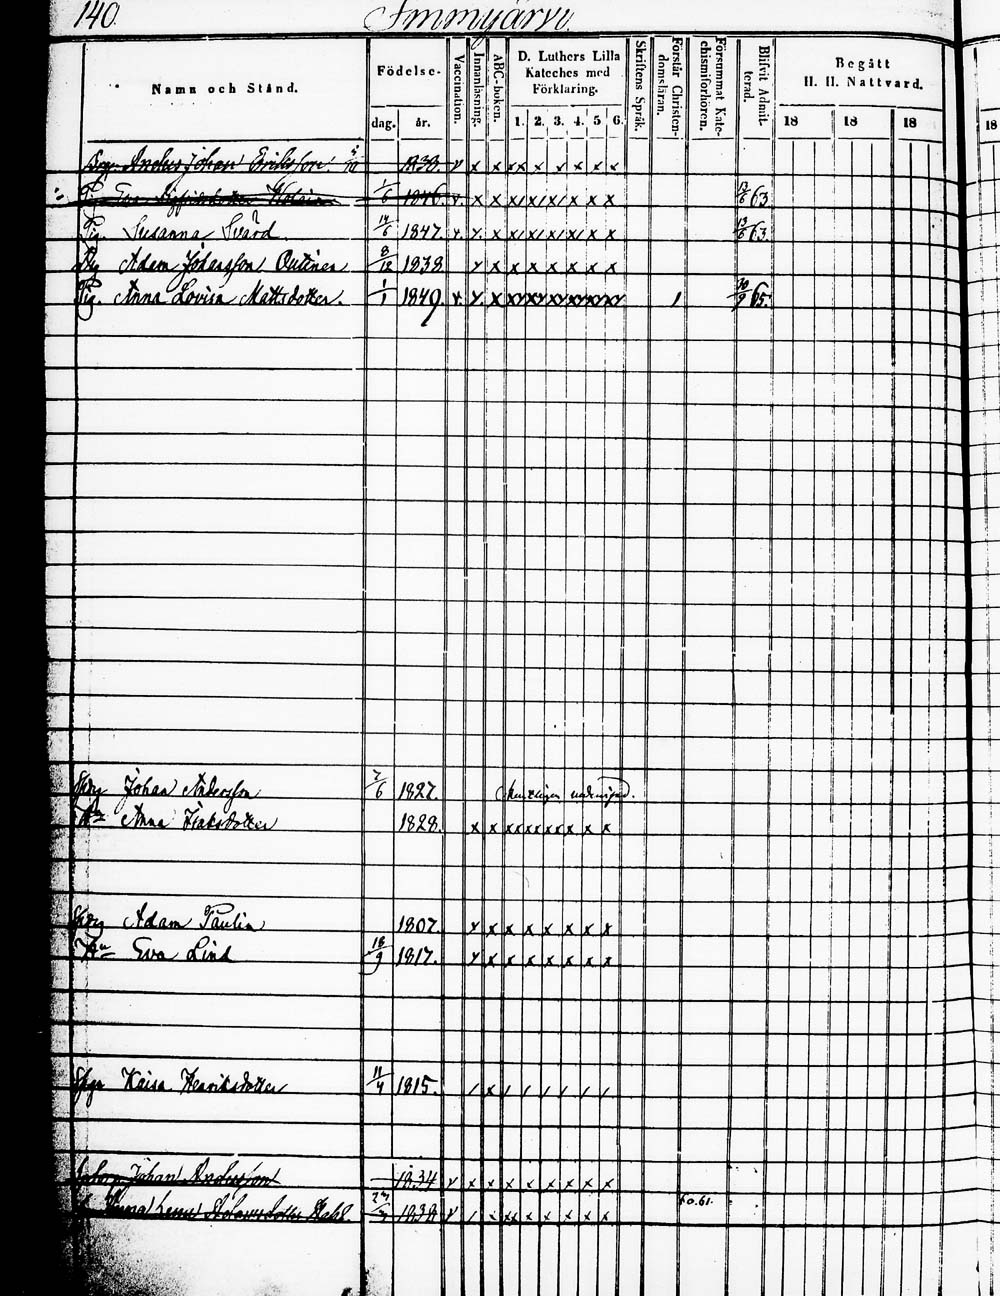 140. Immijärvi.
Namn och Stånd.
Födelse-
dag. år.
Vaccination.
Innanläsning.
ABC-boken.
D. Luthers Lilla
Kateches med
Förklaring.
1. 2. 3. 4. 5 6.
Skriftens Språk.
Förstår Christen-
domsläran.
Försummat Kate-
chismiförhören.
Blifvit Admit-
terad.
Begått
H. H. Nattvard.
18 18 18
18
Drg. Anders Johan Eriksson 1833. v x x xx x x x x x
Pig. 1/6 1846. v. x x x x x x x x 63
Pig. Susanna Svärd 14/6 1847. v. x x x x x x x x 13/6 63.
Drg Adam Johansson Outinen 8/12 1838 x x x x x x x x
Pig. Anna Lovisa Mattsdotter. 1/1 1849 v. x x xx xx xx xx xx xx / 65.
Johan Andersson 7/6 1827.
Anna Isaksdotter 1828. x x xx xx xx x x x
Adam Paulin 1807. x x x x x x x x
Hu Eva Lind 18/9 1817. x x x x x x x x
Kaisa Henriksdotter 11/4 1815. / x / / / / / /
Johan Andersson 1834 v x x x x x x x x
1838 v / x xx x x x x x 60.61.